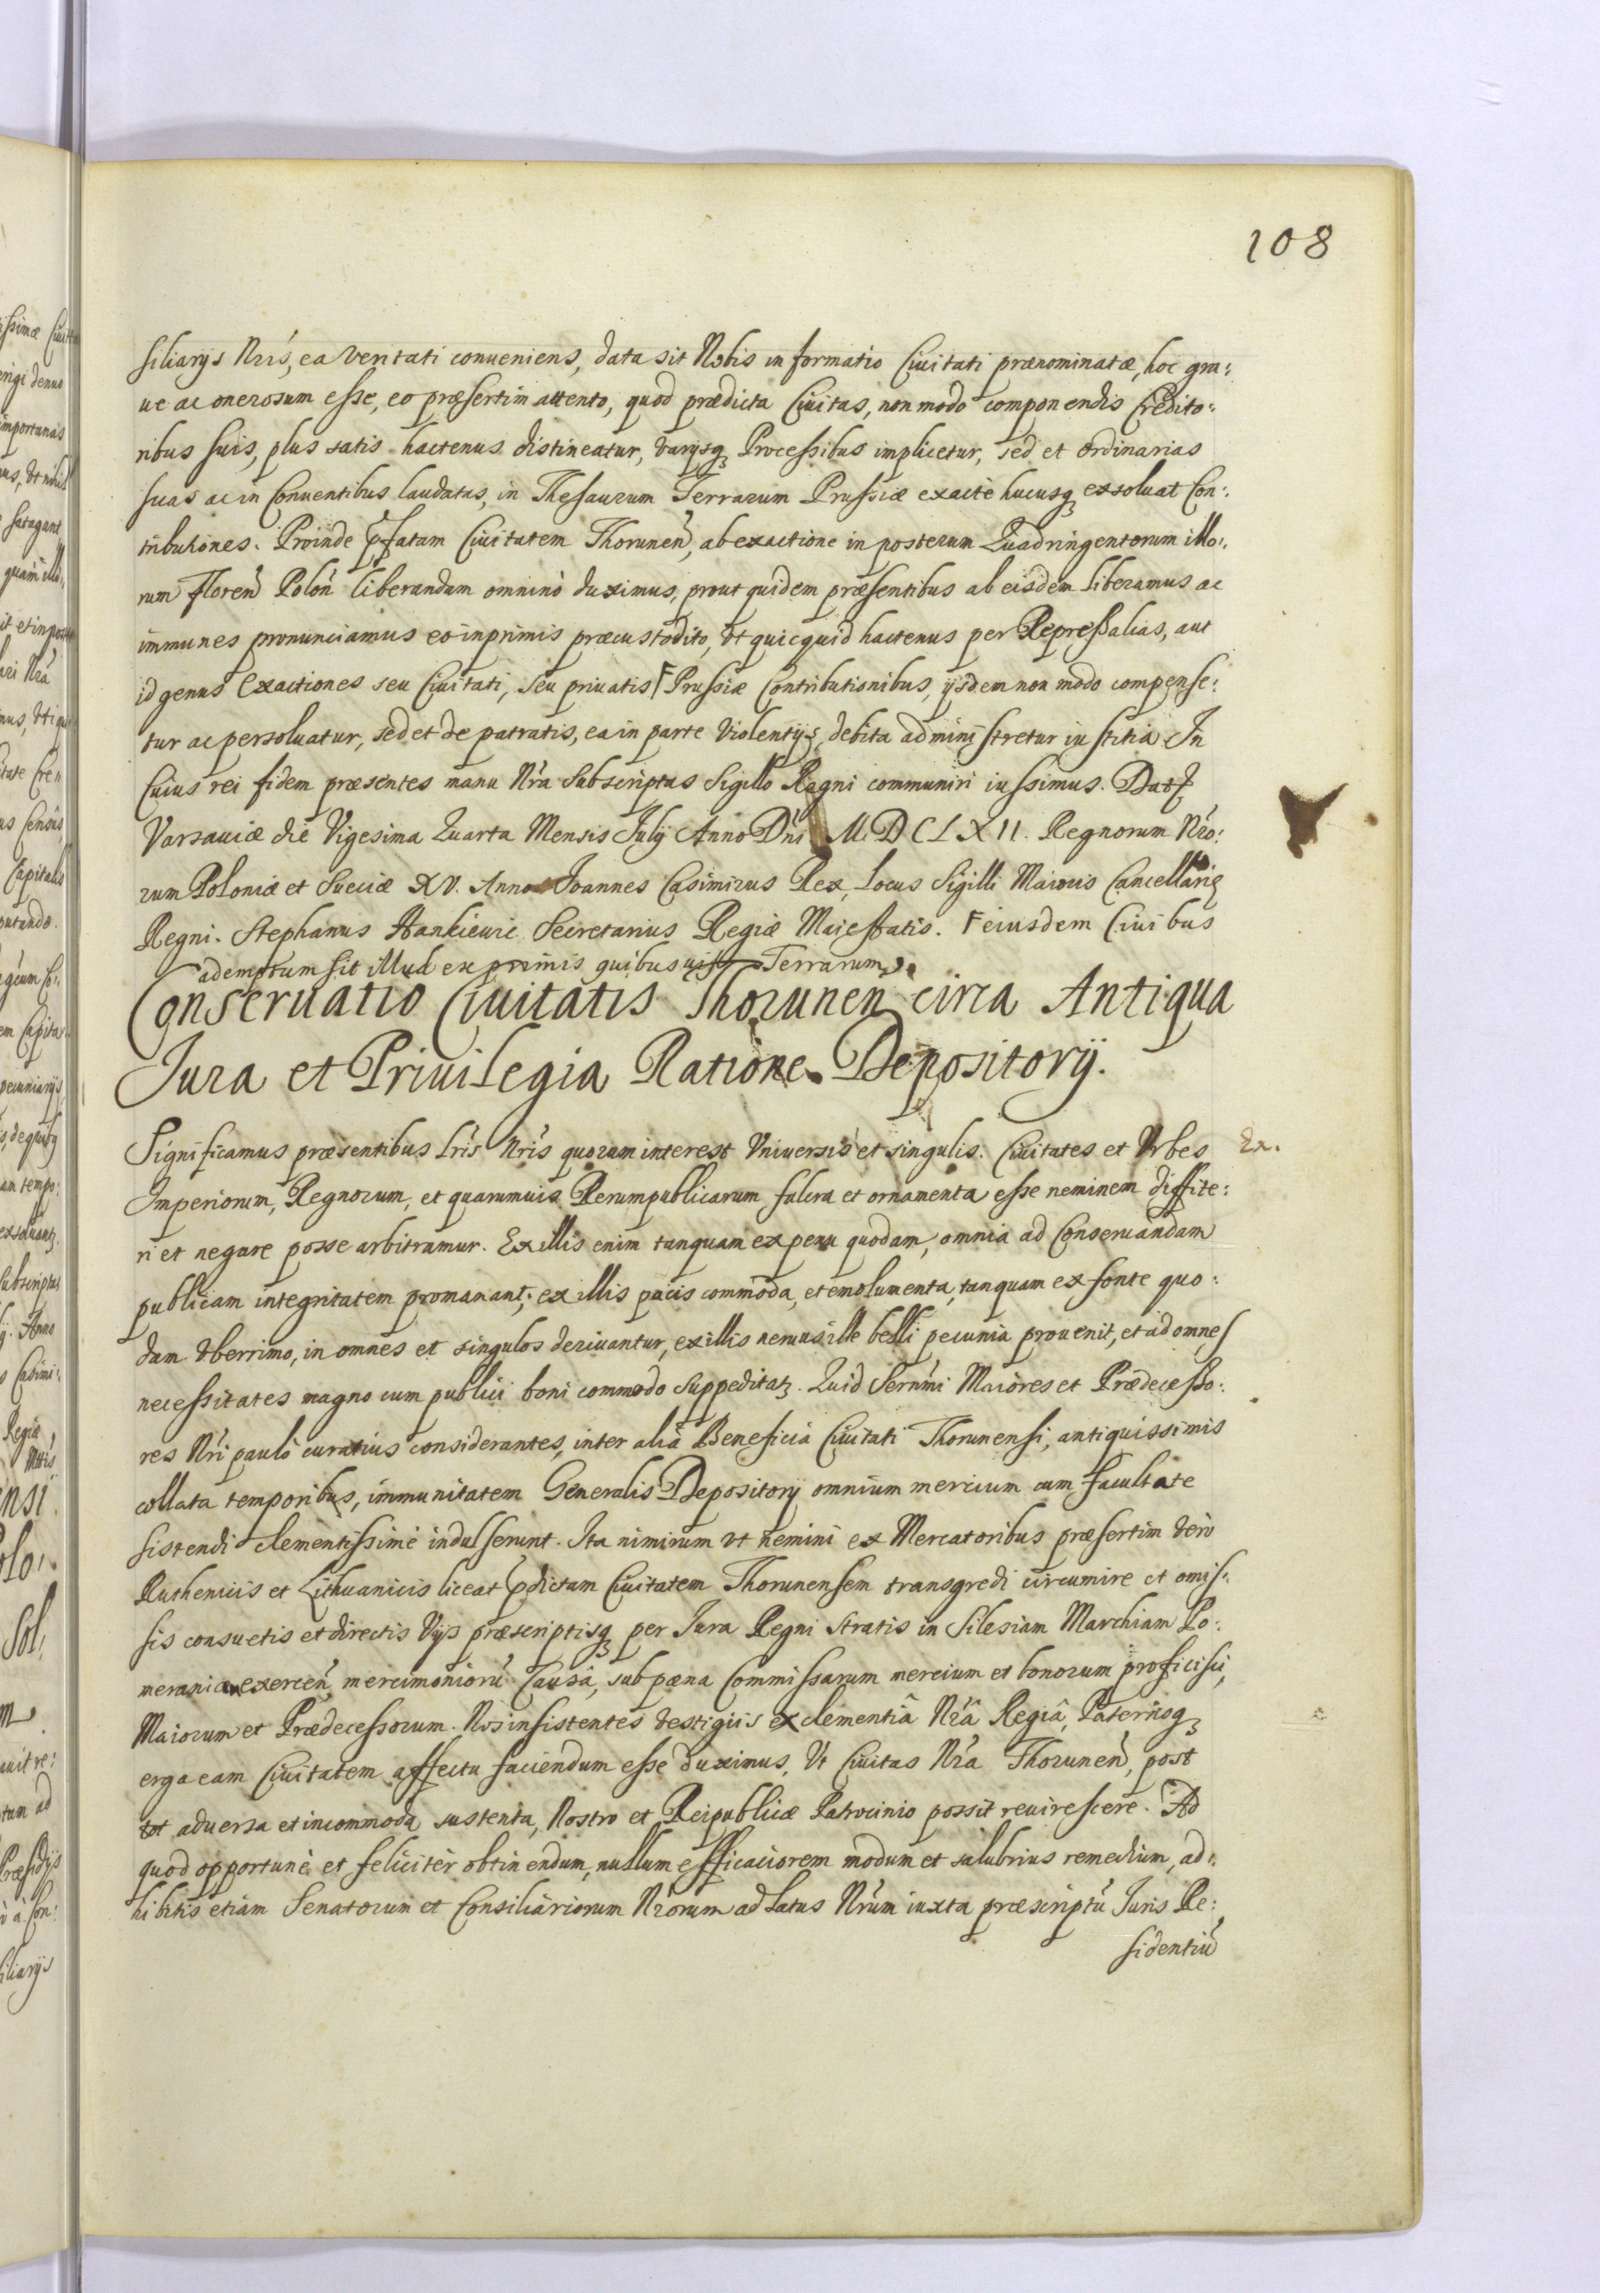 108
siliarijs Nris, ea Veritati conueniens, data sit Nobis informatio Ciuitati prænominatæ, hoc gra:
ue ac onerosum esse, eo præsertim attento, quod prædicta Ciuitas, non modo componendis Credito:
ribus suis, plus satis hactenus distineatur, varijsq Processibus implicetur, sed et ordinarias
suas ac in Conuentibus laudatas, in Thesaurum Terrarum Prussiæ exactè hucusq exsoluat Con:
tributiones. Proinde pfatam Ciuitatem Thorunen, ab exactione in posterum Quadringentorum illo:
rum floren Polon liberandam omninò duximus, prout quidem præsentibus ab eisdem liberamus ac
immunes pronunciamus eo inprimis præcustodito, vt quicquid hactenus per Repressalias, aut
id genus Exactiones seu Ciuitati, seu priuatis Ꞙ Prussiæ Contributionibus, ijsdem non modo compense:
tur ac persoluatur, sed et de patratis, ea in parte Violentijs, debita administretur iustitia In
Cuius rei fidem præsentes manu Nra Subscriptas Sigillo Regni communiri iussimus. Dat
Varsauiæ die Vigesima Quarta Mensis Julij Anno Dni M. D C L X II. Regnorum Nro:
rum Poloniæ et Sueciæ XV. Anno Joannes Casimirus Rex, Locus Sigilli Maioris Cancellariæ
Regni. Stephanus Hankiewic Secretarius Regiæ Maiestatis. Ꞙ eiusdem Ciuibus
ademptum sit illud ex primis quibusuis Terrarum
Conseruatio Ciuitatis Thorunen circa Antiqua
Jura et Priuilegia Ratione Depositorij.
Significamus præsentibus Lris Nris quorum interest Vniuersis et singulis. Ciuitates et Vrbes Ex.
Imperiorum, Regnorum, et quarumuis Rerumpublicarum fulcra et ornamenta esse neminem diffite:
ri et negare posse arbitramur. Ex illis enim tanquam ex penu quodam, omnia ad Conseruandam
publicam integritatem promanant; ex illis pacis commoda, et emolumenta, tanquam ex fonte quo:
dam vberrimo, in omnes et singulos deriuantur, ex illis neruus ille belli pecunia prouenit, et ad omnes
necessitates magno cum publici boni commodo suppeditatq. Quid Sernmi Maiores et Prædecesso:
res Nri paulò curatius considerantes, inter alia Beneficia Ciuitati Thorunensi, antiquissimis
collata temporibus, immunitatem Generalis Depositorij omnium mercium cum facultate
sistendi clementissimè indulserunt. Ita nimirum vt nemini ex Mercatoribus præsertim vero
Ruthenicis et Lithuanicis liceat pdictam Ciuitatem Thorunensem transgredi circumire et omis:
sis consuetis et directis Vijs præscriptisq per Jura Regni stratis in Silesiam Marchiam Po:
meraniam exercen mercimonioru Causâ, sub pæna Commissarum mercium et bonorum proficisci,
Maiorum et Prædecessorum. Nos insistentes vestigiis ex clementiâ Nrâ Regiâ, Paternoq
erga eam Ciuitatem affectu faciendum esse duximus, Vt Ciuitas Nra Thorunen, post
tot aduersa et incommoda sustenta, Nostro et Reipublicæ Patrocinio possit reuirescere. Ad
quod opportunè et feliciter obtinendum, nullum efficaciorem modum et salubrius remedium, ad:
hibitis etiam Senatorum et Consiliariorum Nrorum ad Latus Nrum iuxta præscriptu Juris Re:
sidentiu